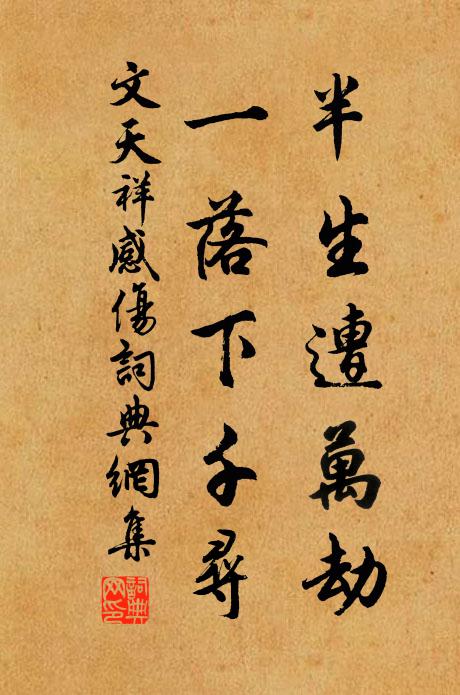 半生遭萬劫
一落下千尋
文天祥感傷詞典網集
詞典網印